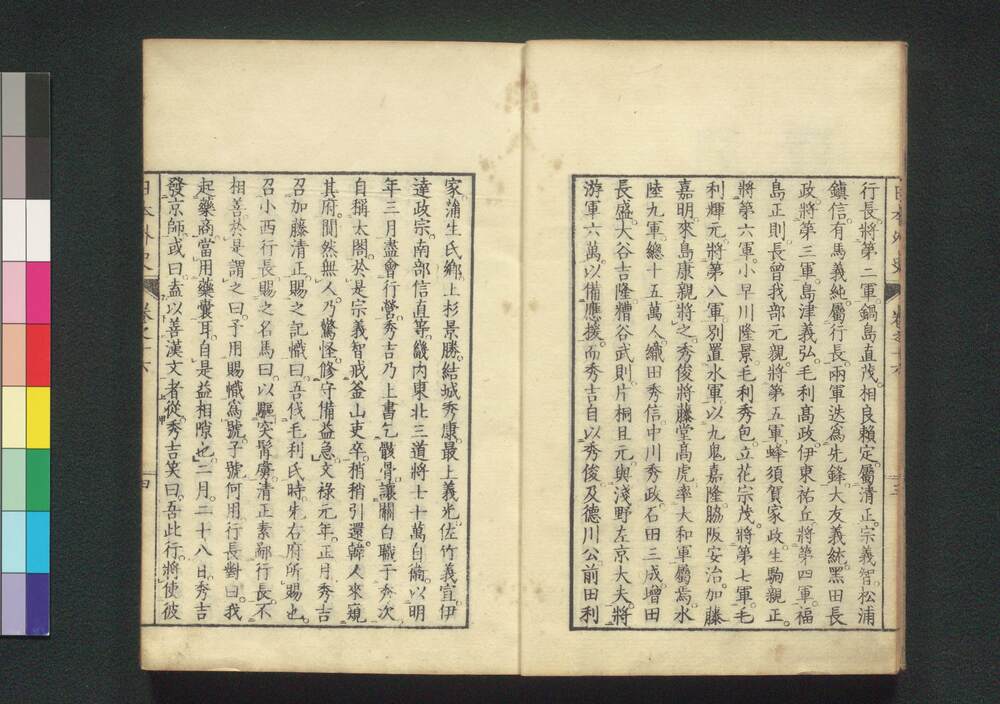 行長將第二軍鍋島直茂相良賴定屬清正宗義智松浦
鎭信有馬義純屬行長兩軍迭爲先鋒大友義統黑田長
政將第三軍島津義弘毛利高政伊東祐丘將第四軍福
島正則長曾我部元親將第五軍蜂須賀家政生駒親正
將第六軍小早川隆景毛利秀包立花宗茂將第七軍毛
利輝元將第八軍別置水軍以九鬼嘉隆脇阪安治加藤
嘉明來島康親將之秀俊將藤堂高虎率大和軍屬焉水
陸九軍總十五萬人織田秀信中川秀政石田三成增田
長盛大谷吉隆糟谷武則片桐且元與淺野左京大夫將
游軍六萬以備應援而秀吉自以秀俊及德川公前田利
家蒲生氏鄉上杉景勝結城秀康最上義光佐竹義宣伊
達政宗南部信直等畿内東北三道將士十萬自衞以明
年三月盡會行營秀吉乃上書乞骸骨讓關白職于秀次
自稱太閤於是宗義智戒釜山吏卒稍稍引還韓人來窺
其府闃然無人乃驚怪修守備益急文祿元年正月秀吉
召加藤清正賜之記幟曰吾伐毛利氏時先右府所賜也
召小西行長賜之名馬曰以驅突髯虜清正素鄙行長不
相善於是謂之曰予用賜幟爲號子號何用行長對曰我
起藥商當用藥囊耳自是益相隙也二月二十八日秀吉
發京師或曰盍以善漢文者從秀吉笑曰吾此行將使彼
日本外史 卷之十六 四